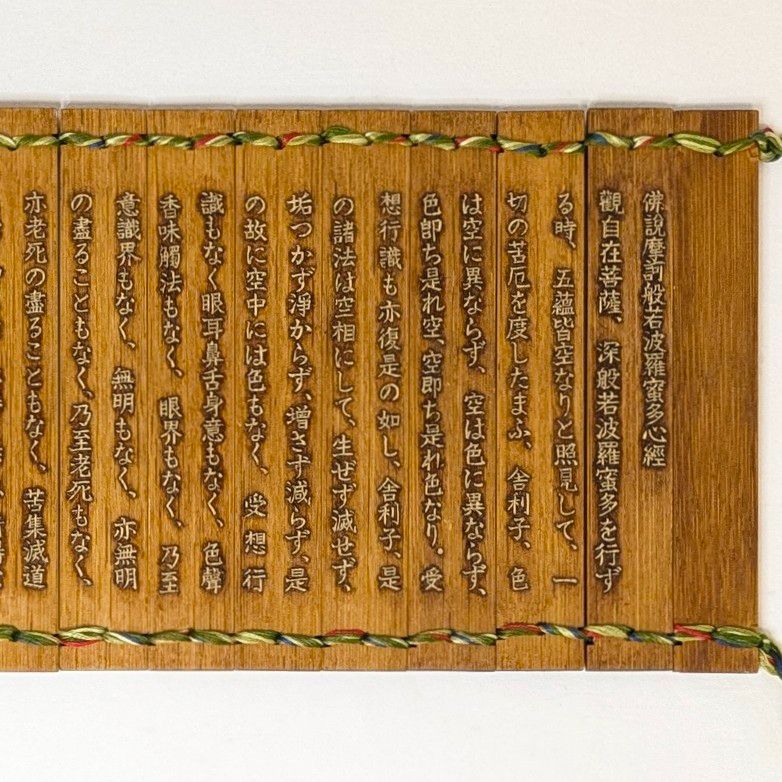 佛説摩訶般若波羅蜜多心經
觀自在菩薩、深般若波羅蜜多を行ず
る時、五蘊皆空なりと照見して、一
切の苦厄を度したまふ、舎利子、色
は空に異ならず、空は色に異ならず、
色即ち是れ空、空即ち是れ色なり。受
想行識も亦復是の如し、舎利子、是
の諸法は空相にして、生ぜず滅せず、
垢つかず淨からず、増さず減らず、是
の故に空中には色もなく、受想行
識もなく眼耳鼻舌身意もなく、色聲
香味觸法もなく、眼界もなく、乃至
意識界もなく、無明もなく、亦無明
の盡ることもなく、乃至老死もなく、
亦老死の盡ることもなく、苦集滅道